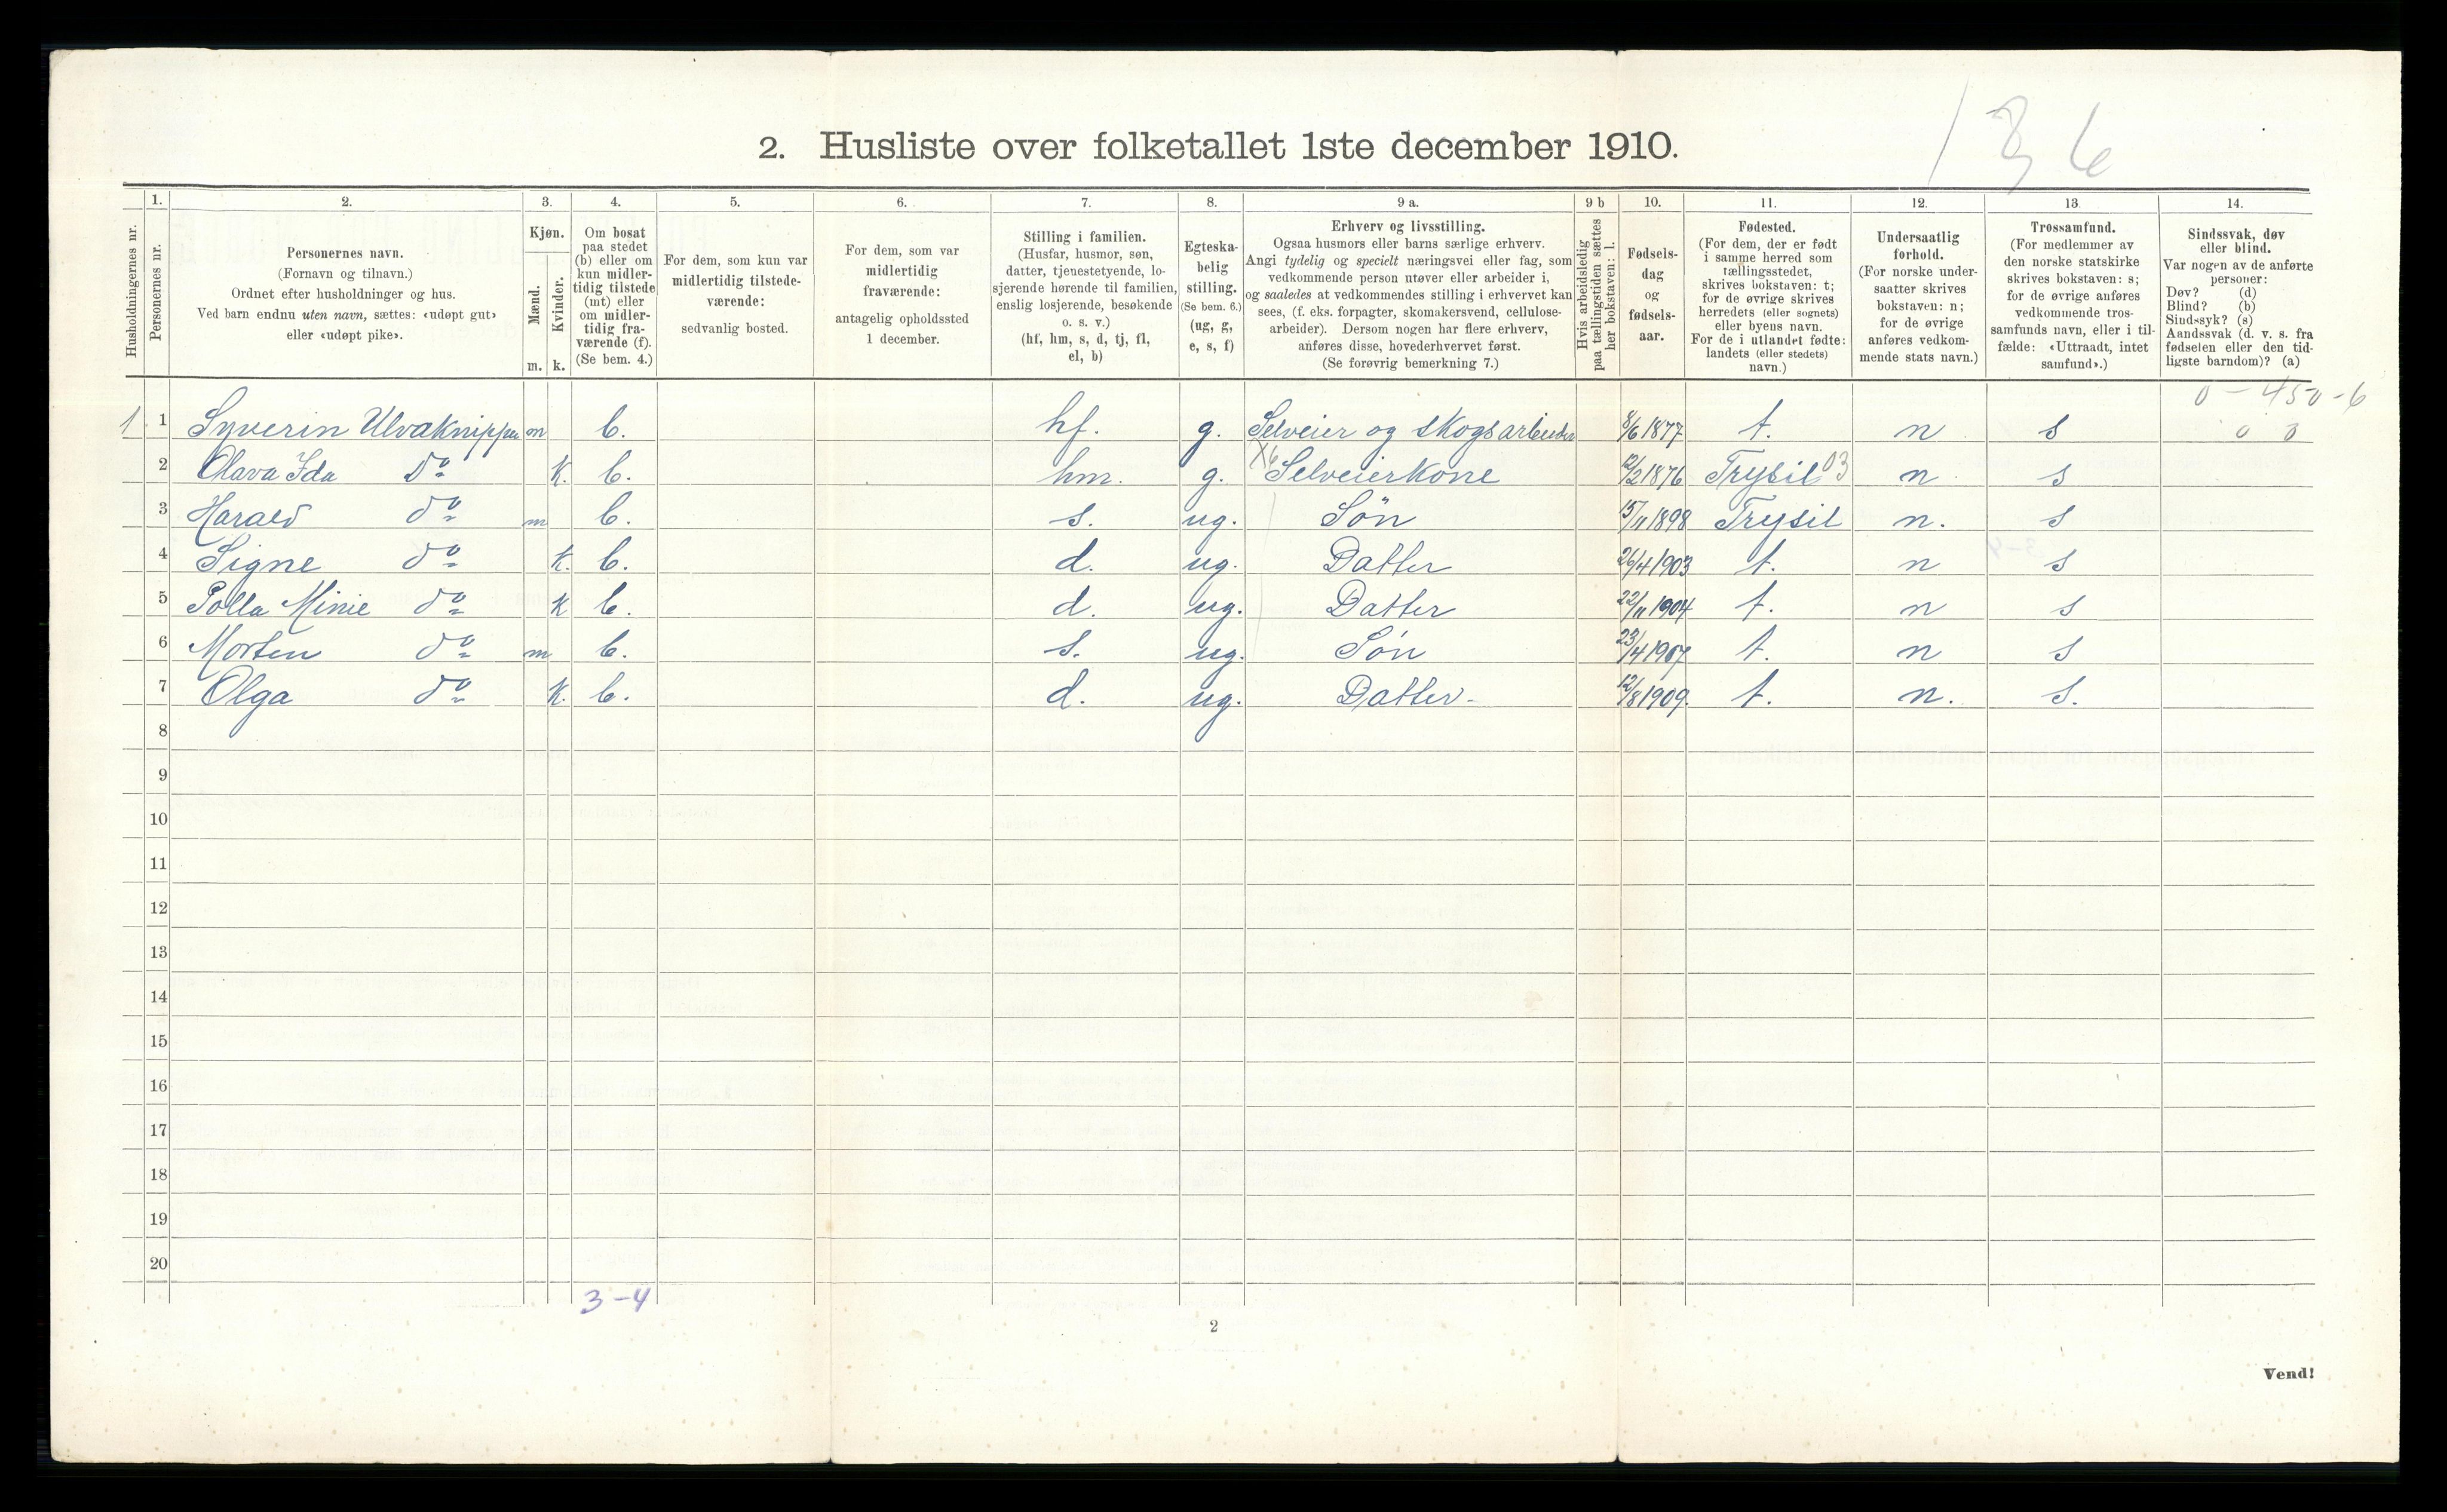 136
2. Husliste over folketallet 1ste december 1910.
Husholdningernes nr.
1. Personernes nr.
2. Personernes navn. (Fornavn og tilnavn.) Ordnet efter husholdninger og hus. Ved barn endnu uten navn, sættes: «udøpt gut» eller «udøpt pike».
3. Kjøn. Mænd. m. Kvinder. k.
4. Om bosat paa stedet (b) eller om kun midlertidig tilstede (mt) eller om midlertidig fraværende (f). (Se bem. 4.)
5. For dem, som kun var midlertidig tilstedeværende: sedvanlig bosted.
6. For dem, som var midlertidig fraværende: antagelig opholdssted 1 december.
7. Stilling i familien. (Husfar, husmor, søn, datter, tjenestetyende, losjerende hørende til familien, enslig losjerende, besøkende o. s. v.) (hf, hm, s, d, tj, fl, el, b)
8. Egteskabelig stilling. (Se bem. 6.) (ug, g, e, s, f)
9 a. Erhverv og livsstilling. Ogsaa husmors eller barns særlige erhverv. Angi tydelig og specielt næringsvei eller fag, som vedkommende person utøver eller arbeider i, og saaledes at vedkommendes stilling i erhvervet kan sees, (f. eks. forpagter, skomakersvend, cellulosearbeider). Dersom nogen har flere erhverv, anføres disse, hovederhvervet først. (Se forøvrig bemerkning 7.)
9 b Hvis arbeidsledig paa tællingstiden sættes her bokstaven: l.
10. Fødselsdag og fødselsaar.
11. Fødested. (For dem, der er født i samme herred som tællingsstedet, skrives bokstaven: t; for de øvrige skrives herredets (eller sognets) eller byens navn. For de i utlandet fødte: landets (eller stedets) navn.)
12. Undersaatlig forhold. (For norske undersaatter skrives bokstaven: n; for de øvrige anføres vedkommende stats navn.)
13. Trossamfund. (For medlemmer av den norske statskirke skrives bokstaven: s; for de øvrige anføres vedkommende trossamfunds navn, eller i tilfælde: «Uttraadt, intet samfund».)
14. Sindssvak, døv eller blind. Var nogen av de anførte personer: Døv? (d) Blind? (b) Sindssyk? (s) Aandssvak (d. v. s. fra fødselen eller den tidligste barndom)? (a)
0 - 450 - 6
1 1 Syverin Ulvaknippen m b. hf. g. Selveier og skogsarbeider 8/6 1877 t. n s 0 3
2 Olava Ida do k. b. hm. g. Selveierkone 12/2 1876 Trysil 03 n s
3 Harald do m b. s. ug. Søn 15/11 1898 Trysil n. s
4 Signe do k. b. d. ug. Datter 26/4 1903 t. n s
5 Polla Minie do k b. d. ug. Datter 22/11 1904 t. n s
6 Morten do m b. s. ug. Søn 23/4 1907 t. n s
7 Olga do k. b. d. ug. Datter 12/8 1909. t. n. s.
8
9
10
11
12
13
14
15
16
17
18
19
20
3-4
2
Vend!